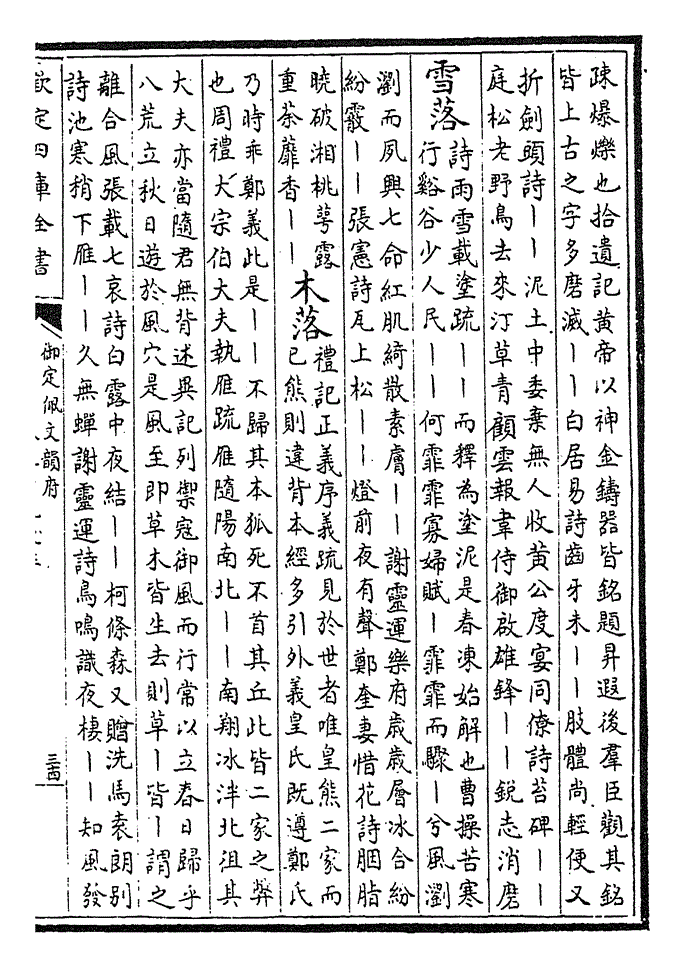 疎爆爍也拾遺記黄帝以神金鑄器皆銘題昇遐後羣臣觀其銘
皆上古之字多磨滅丨丨白居易詩齒牙未丨丨肢體尚輕便又
折劍頭詩丨丨泥土中委棄無人收黄公度宴同僚詩苔碑丨丨
庭松老野鳥去來汀草青顧雲報韋侍御啟雄鋒丨丨鋭志消磨
雪落
詩雨雪載塗疏丨丨而釋為塗泥是春凍始解也曹操苦寒
行谿谷少人民丨丨何霏霏寡婦賦丨霏霏而驟丨兮風瀏
瀏而夙興七命紅肌綺散素膚丨丨謝靈運樂府歳歳層冰合紛
紛霰丨丨張憲詩瓦上松丨丨燈前夜有聲鄭奎妻惜花詩胭脂
曉破湘桃萼露
重荼蘼香丨丨
木落
禮記正義序義疏見於世者唯皇熊二家而
已熊則違背本經多引外義皇氏既遵鄭氏
乃時乖鄭義此是丨丨不歸其本狐死不首其丘此皆二家之弊
也周禮大宗伯大夫執雁疏雁隨陽南北丨丨南翔冰泮北沮其
大夫亦當隨君無背述異記列禦寇御風而行常以立春日歸乎
八荒立秋日遊於風穴是風至即草木皆生去則草丨皆丨謂之
離合風張載七哀詩白露中夜結丨丨柯條森又贈洗馬袁朗別
詩池寒稍下雁丨丨久無蟬謝靈運詩鳥鳴識夜棲丨丨知風發
欽定四庫全書
御定佩文韻府
三十四